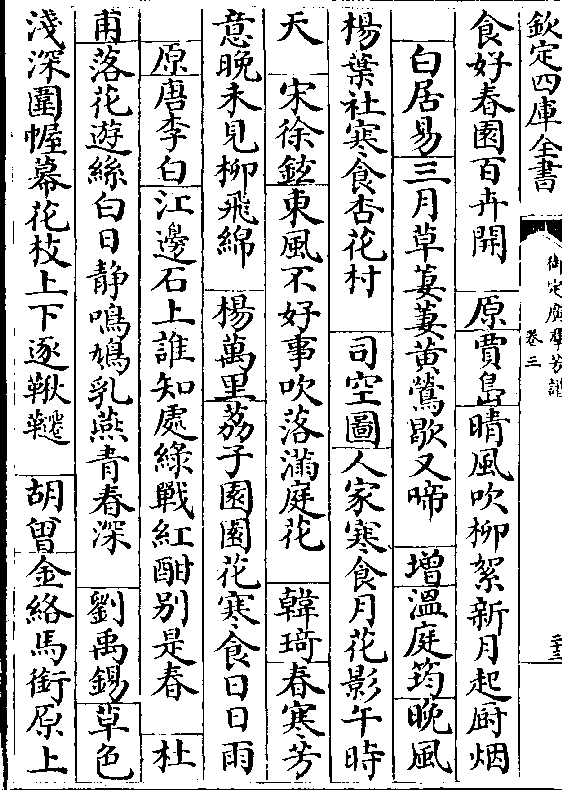 欽定四庫全書
御定廣羣芳譜 卷三 二十三
食好春園百卉開 原 賈島 晴風吹柳絮新月起厨烟
白居易 三月草萋萋黄鶯歇又啼 增 溫庭筠 晚風
楊葉社寒食杏花村 司空圖 人家寒食月花影午時
天 宋徐鉉 東風不好事吹落滿庭花 韓琦 春寒芳
意晚未見柳飛綿 楊萬里 荔子園園花寒食日日雨
原 唐李白 江邊石上誰知處綠戰紅酣别是春 杜
甫 落花遊絲白日静鳴鳩乳燕青春深 劉禹錫 草色
淺深圍幄幕花枝上下逐鞦韆 胡曾 金絡馬銜原上